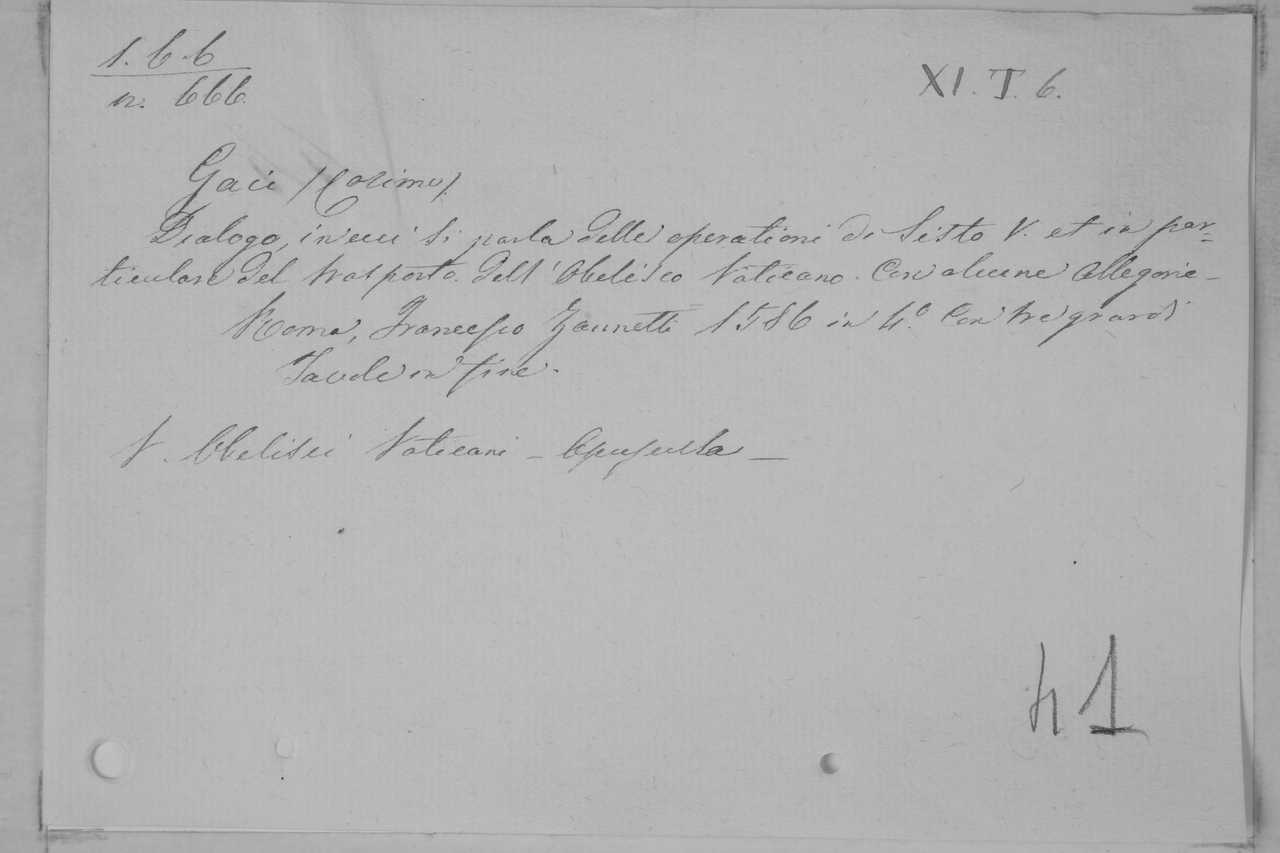 1. 6. 6
n. 666.
XI. T. 6.
Gaci /Cosimo/.
Dialogo, in cui si parla delle operationi di Sisto V. et in par=
ticulare del trasporto dell'Obelisco Vaticano. Con alcune Allegorie -
Roma, Francesco Zannetti 1586 in 4.º Con tre grandi
Tavole in fine.
V. Obelisci Vaticani - Opuscula -
41